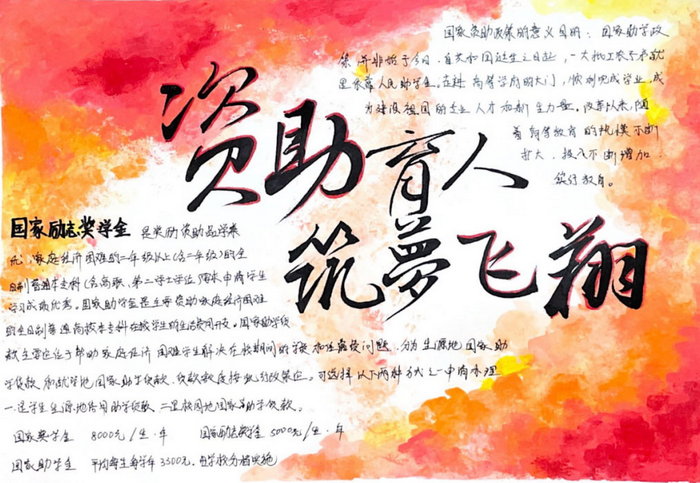 国家资助政策的意义目的：国家助学政
策，并非始于今日，自共和国诞生之日起，一大批工农子弟就
是依靠人民助学金，走进高等学府的大门，顺利完成学业，成
为建设祖国的专业人才和新生力量。改革以来，随
着高等教育的规模不断
扩大，投入不断增加，
资助育人
筑夢飞翔
国家励志奖学金 是奖励资助品学兼
优，家庭经济困难的二年级以上（含二年级）的全
日制普通本专科（含高职、第二学士学位）在校学生
学习成绩优秀。国家助学金是主要资助家庭经济困难
的全日制普通高校本专科在校学生的生活费用开支。国家助学贷
款主要在于帮助家庭经济困难学生解决在校期间的学费和住宿费问题，分为生源地国家助
学贷款和就学地国家助学贷款，可选择以下两种方式之一申请办理
一是学生生源地信用助学贷款 二是校园地国家助学贷款。
国家奖学金 8000元/生·年 国家励志奖学金 5000元/生·年
国家助学金 平均每生每学年3300元，由学校分档实施